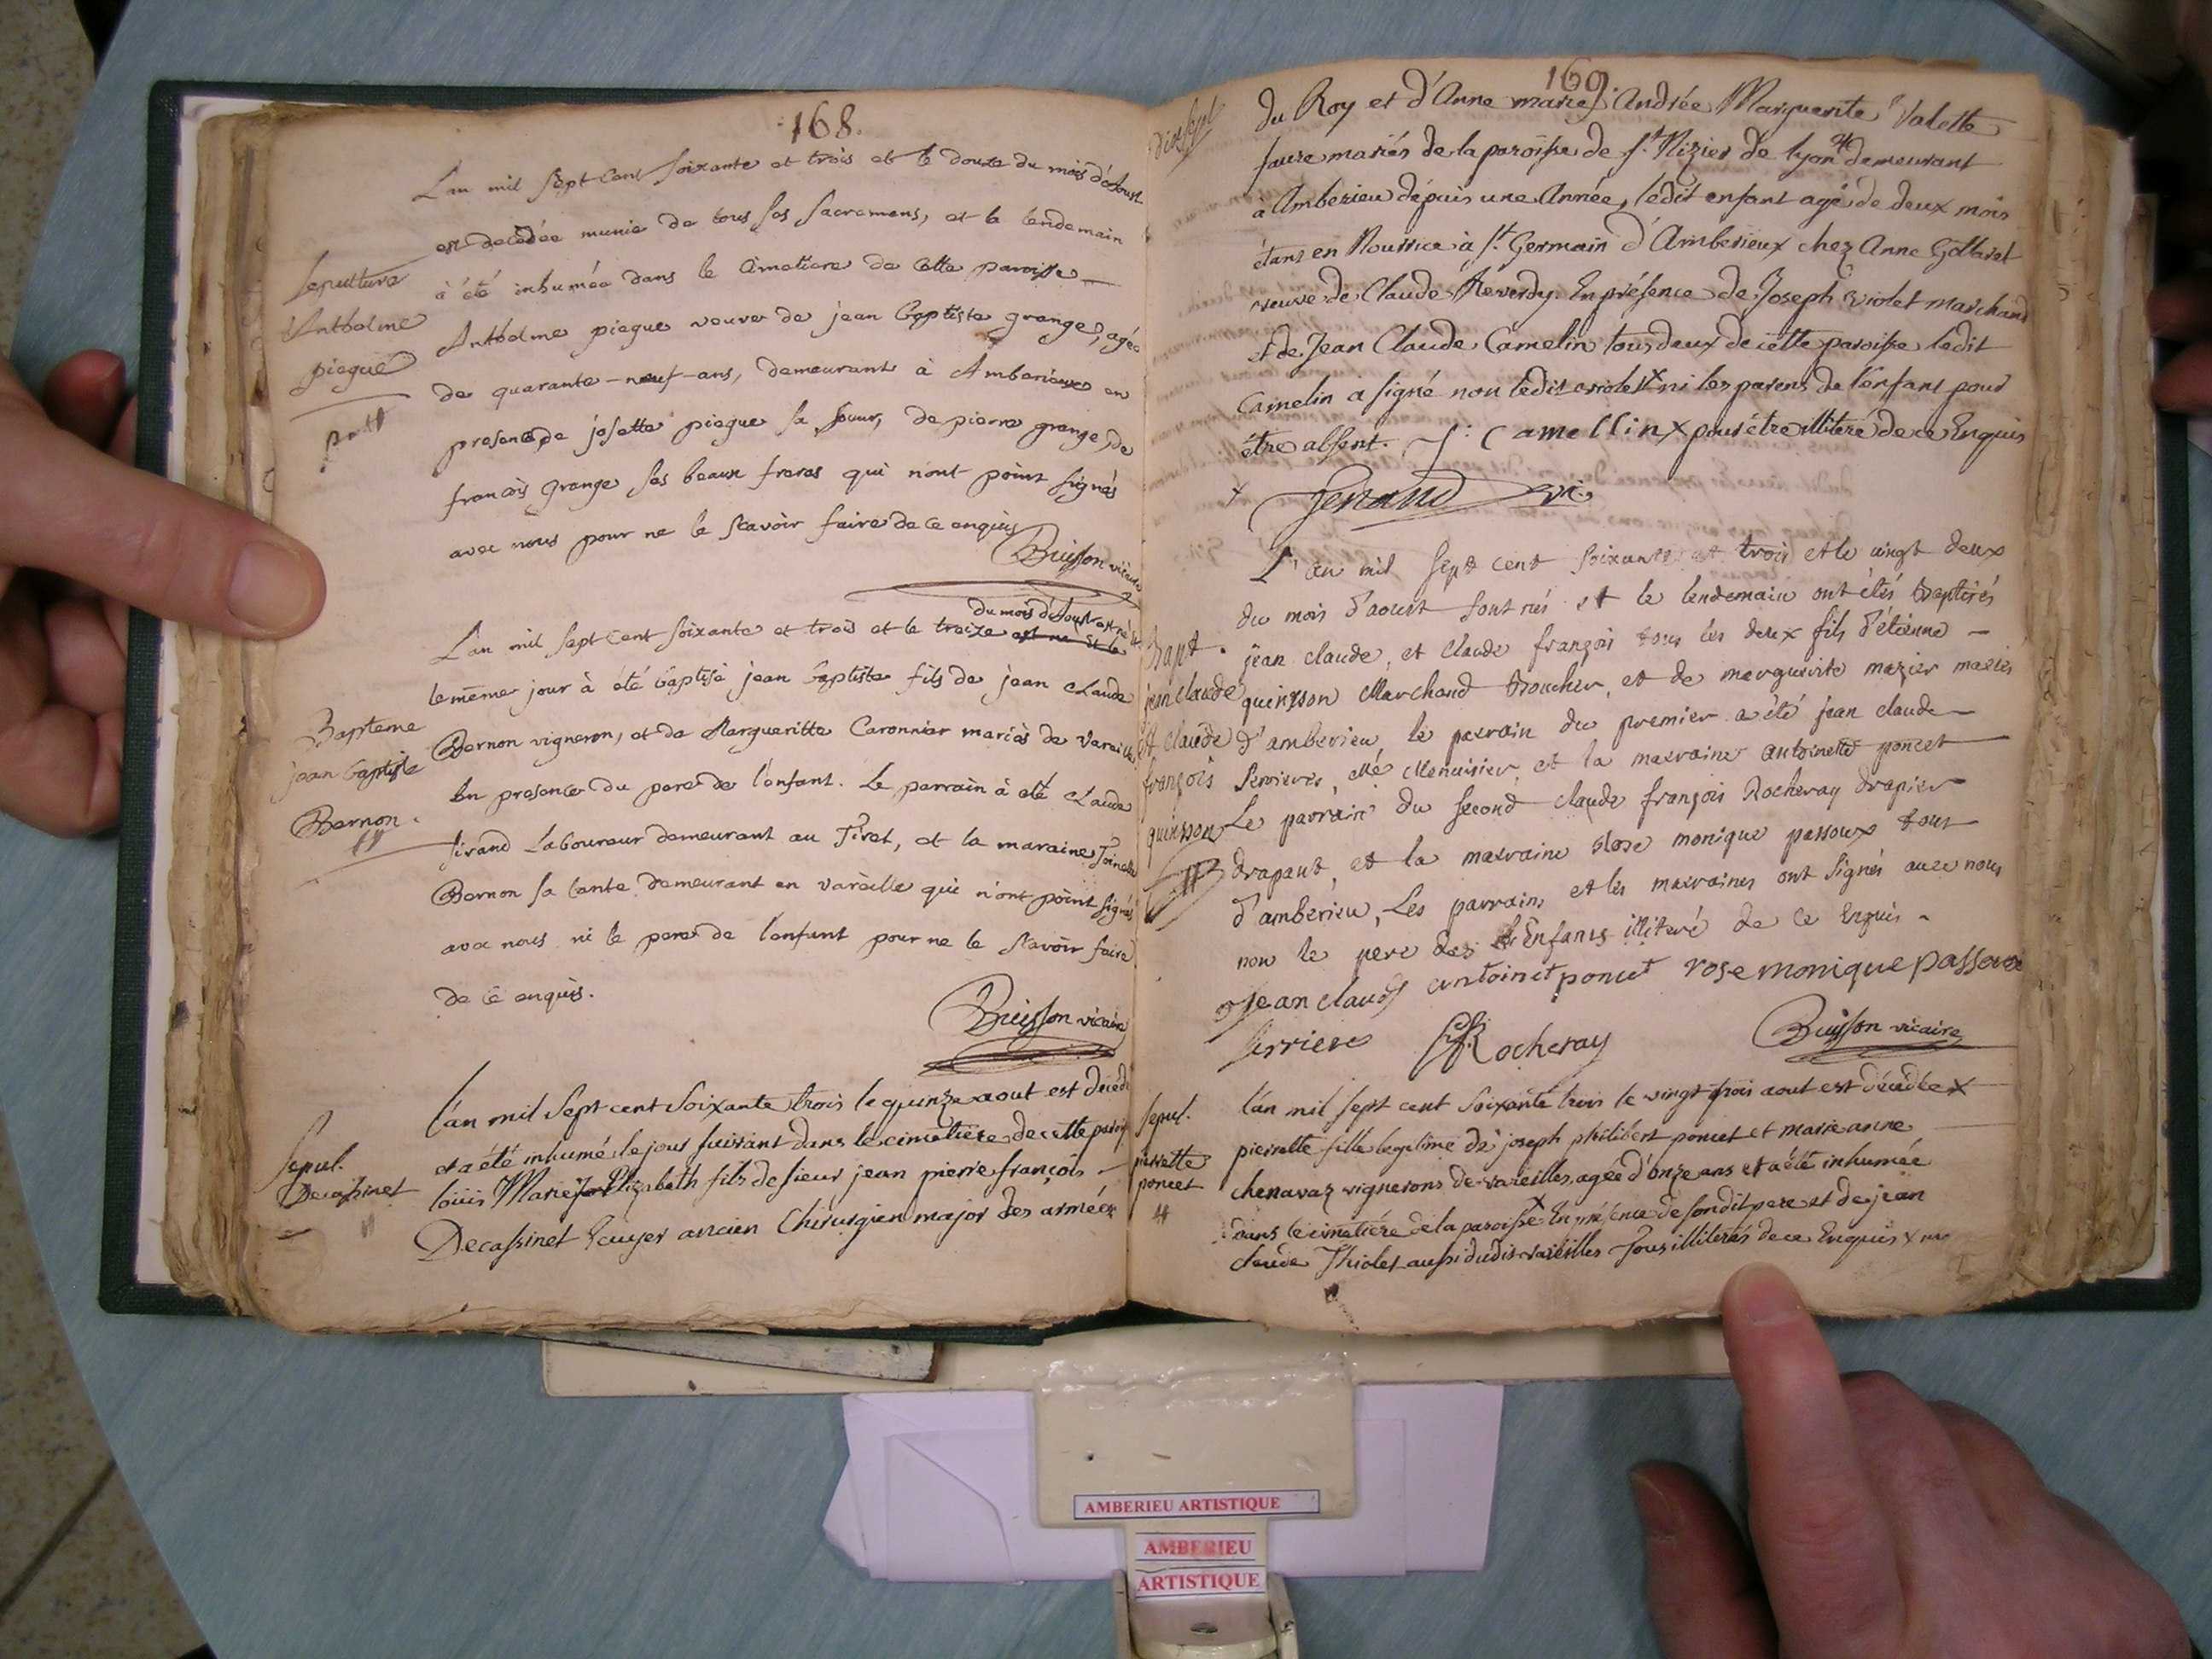 168.
L'an mil sept cent soixante et trois et le douze du mois d'aoust
est decédée munie de tous ses sacremens, et le lendemain
à été inhumée dans le cimetiere de cette paroisse
Anthelme piegue veuve de jean baptiste grange, agée
de quarante-neuf-ans, demeurant à Amberieux en
presence de josette piegue sa soeur, de pierre grange, de
francois grange ses beaux freres qui n'ont point signés
avec nous pour ne le scavoir faire de ce enquis
Buisson vicaire
sepulture
Anthelme
piegue
du mois d'aoust est né et
L'an mil sept cent soixante et trois et le treize est né et le
le même jour à été baptisé jean baptiste fils de jean claude
Bernon vigneron, et de Margueritte Caronnier mariés de Vareille
En presence du pere de l'enfant. Le parrain à eté claude
sirand Laboureur demeurant au Tiret, et la maraine Toinette
Bernon sa tante demeurant en vareille qui n'ont point signés
avec nous ni le pere de l'enfant pour ne le scavoir faire
de ce enquis.
Buisson vicaire
Bapteme
jean baptiste
Bernon.
L'an mil sept cent soixante trois le quinze aout est décédé
et a été inhumé le jour suivant dans le cimetiere de cette paroisse
loüis Marie Elizabeth fils de sieur jean pierre françois
Decassinet Ecuyer ancien Chirurgien major des armées
sepul.
Decassinet
169.
du Roy et d'Anne marie Andrée Marguerite Valette
faure mariés de la paroisse de st. Nizier de lyon et demeurant
à Amberieu dépuis une Année, ledit enfant agé de deux mois
étans en Nourrice à st. Germain d'Amberieux chez Anne Gollaret
veuve de Claude Reverdy. En présence de Joseph violet marchand
et de Jean Claude Camelin tous deux de cette paroisse ledit
Camelin a signé non ledit violet x ni les parens de l'enfant pour
être absent. J: Camellin x pour être illiteré de ce Enquis
x Ferrand vic
L'an mil sept cent soixante et trois et le vingt deux
du mois d'aoust sont nés et le lendemain ont étés baptisés
jean claude, et claude françois tous les deux fils d'étienne
quinson Marchand boucher, et de marguerite mazier mariés
d'amberieu, le parrain du premier a été jean claude
serrieres, Me Menuisier, et la marraine antoinette poncet
Le parrain du second claude françois Rocheray drapier
drapant, et la marraine Rose monique passoux tous
d'amberieu, Les parrains et les marraines ont signés avec nous
non le pere des Enfants illiteré de ce Enquis.
Jean claude antoinet poncet rose monique passoux
serriere Rocheray Buisson vicaire
Bapt.
jean claude
et claude
françois
quinson
L'an mil sept cent soixante trois le vingt trois aout est décédée x
pierrette fille legitime de joseph philibert poncet et marie anne
chenavaz vignerons de vareilles, agée d'onze ans et a été inhumée
dans le cimetiére de la paroisse x En présence de son dit pere et de jean
claude Thiolet aussi dudit vareilles Tous illiterés de ce Enquis x
sepul.
pierrette
poncet
AMBERIEU ARTISTIQUE
AMBERIEU
ARTISTIQUE